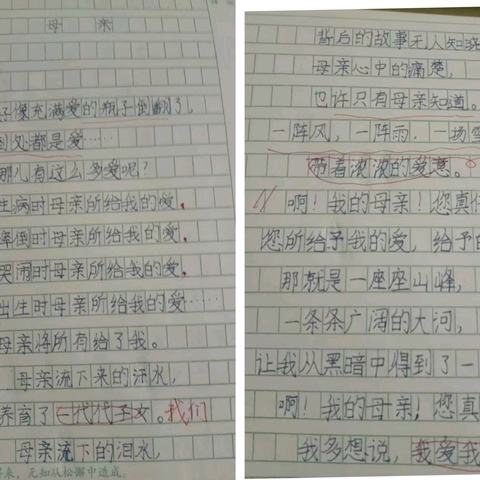 母亲
好像充满爱的瓶子倒翻了,
到处都是爱……
那儿有这么多爱呢?
生病时母亲所给我的爱,
摔倒时母亲所给我的爱,
哭闹时母亲所给我的爱,
出生时母亲所给我的爱……
母亲将所有给了我。
母亲流下来的汗水,
养育了一代代子女。我们
母亲流下的泪水,
来,无知从松懈中造成。
背后的故事无人知晓
母亲心中的痛楚,
也许只有母亲知道。
一阵风,一阵雨,一场雪
带着浓浓的爱意。
啊!我的母亲!您真伟
您所给予我的爱,给予的
那就是一座座山峰,
一条条广阔的大河,
让我从黑暗中得到了一
啊!我的母亲!您真
我多想说,我爱我